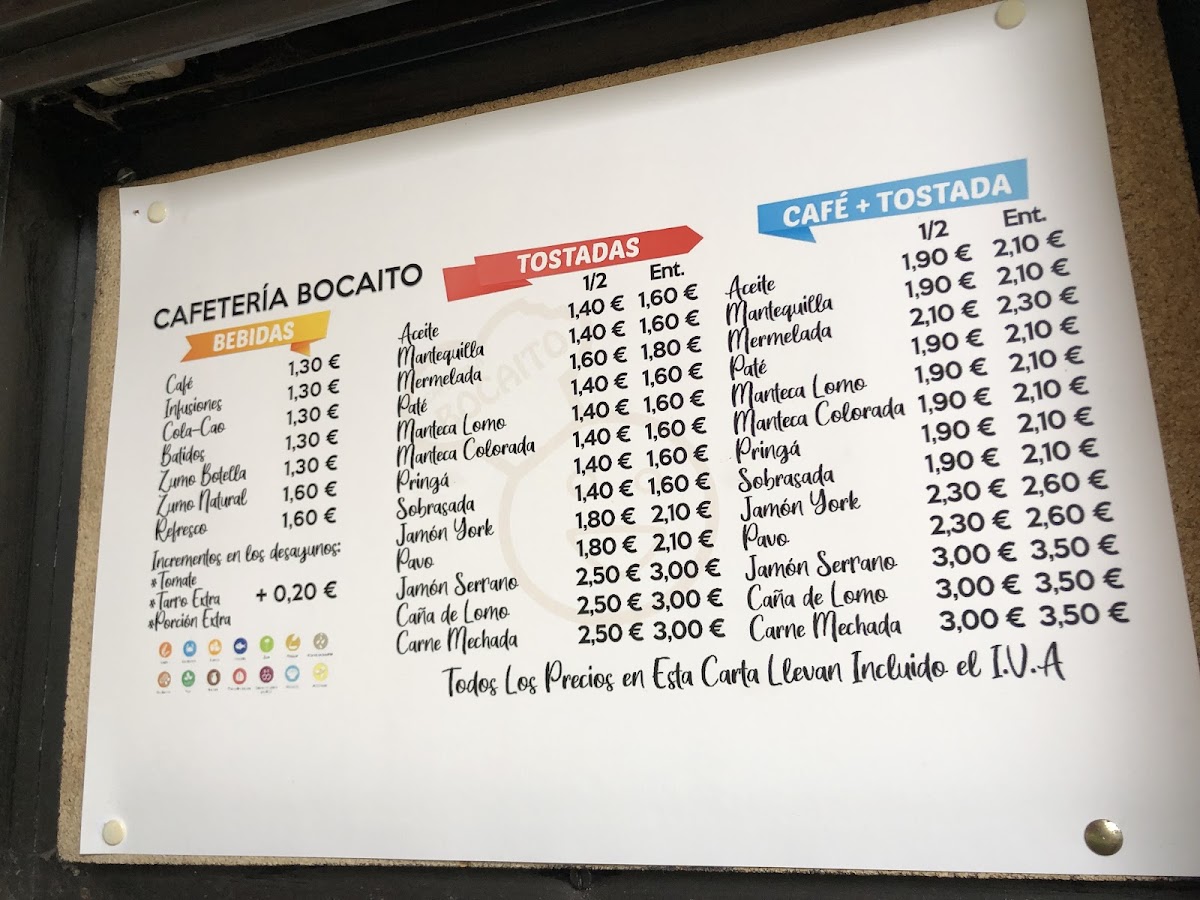 CAFETERÍA BOCAITO
BEBIDAS
Café 1,30 €
Infusiones 1,30 €
Cola-Cao 1,30 €
Batidos 1,30 €
Zumo Botella 1,30 €
Zumo Natural 1,60 €
Refresco 1,60 €
Incrementos en los desayunos:
*Tomate
*Tarro Extra + 0,20 €
*Porción Extra
TOSTADAS
1/2 Ent.
Aceite 1,40 € 1,60 €
Mantequilla 1,40 € 1,60 €
Mermelada 1,60 € 1,80 €
Paté 1,40 € 1,60 €
Manteca Lomo 1,40 € 1,60 €
Manteca Colorada 1,40 € 1,60 €
Pringá 1,40 € 1,60 €
Sobrasada 1,40 € 1,60 €
Jamón York 1,80 € 2,10 €
Pavo 1,80 € 2,10 €
Jamón Serrano 2,50 € 3,00 €
Caña de Lomo 2,50 € 3,00 €
Carne Mechada 2,50 € 3,00 €
BOCAITO
CAFÉ + TOSTADA
1/2 Ent.
Aceite 1,90 € 2,10 €
Mantequilla 1,90 € 2,10 €
Mermelada 2,10 € 2,30 €
Paté 1,90 € 2,10 €
Manteca Lomo 1,90 € 2,10 €
Manteca Colorada 1,90 € 2,10 €
Pringá 1,90 € 2,10 €
Sobrasada 1,90 € 2,10 €
Jamón York 2,30 € 2,60 €
Pavo 2,30 € 2,60 €
Jamón Serrano 3,00 € 3,50 €
Caña de Lomo 3,00 € 3,50 €
Carne Mechada 3,00 € 3,50 €
Todos Los Precios en Esta Carta Llevan Incluido el I.V.A